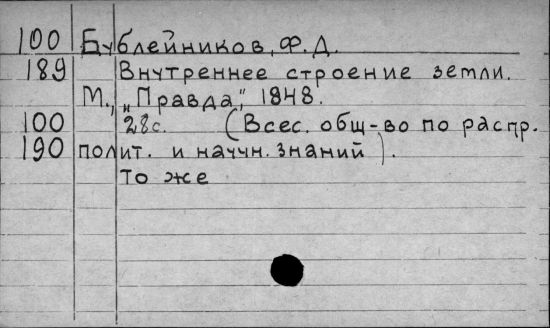 100 Бублейников, Ф.Д.
189 Внутреннее строение земли.
М., „Правда", 1948.
100 28с. (Всес. общ-во по распр.
190 полит. и научн. знаний).
То же